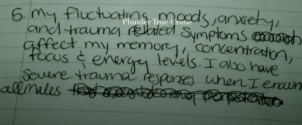 5. my fluctuating moods, anxiety,
Plunder True Crime
and trauma related symptoms
affect my memory, concentration,
focus & energy levels. I also have
severe trauma responses when I
all males